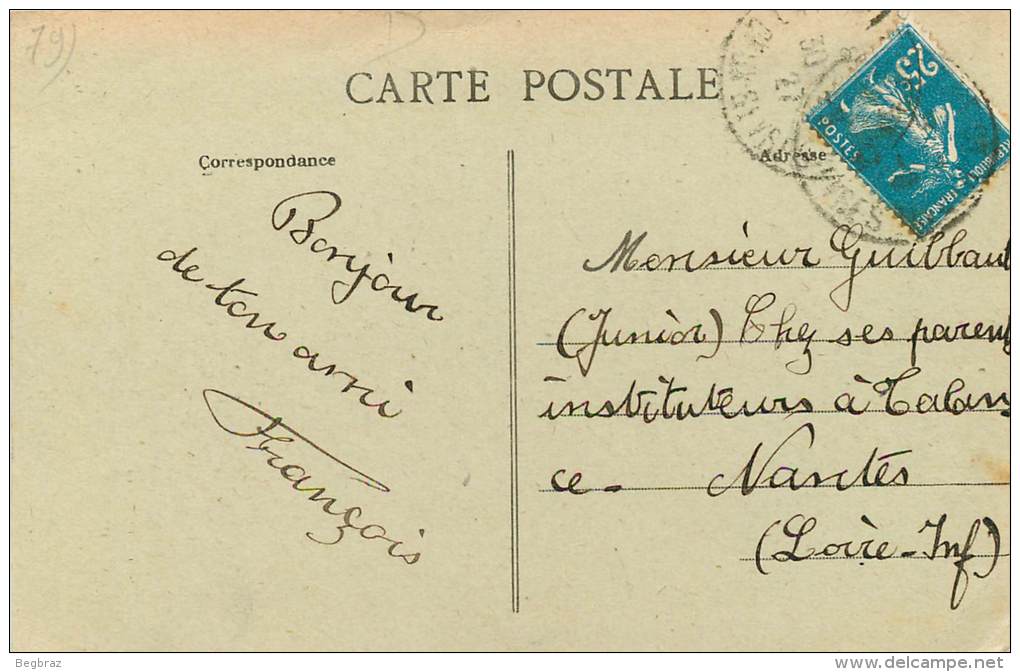 79)
CARTE POSTALE
Correspondance
Adresse
25c
POSTES
REPUBLIQUE FRANÇAISE
Bonjour
de ton ami
François
Monsieur Guilbaul
(Junior) Chez ses paren
instituteurs à Talan
ce. Nantes
(Loire-Inf)
DEUX-SEVRES
Begbraz
www.delcampe.net